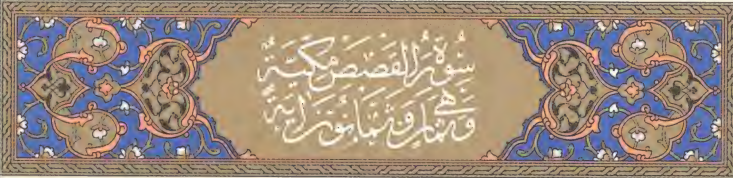 سُورَةُ القَصَصِ مَكِّيَّةٌ
وَهِيَ ثَمَانٍ وَثَمَانُونَ آيَةً